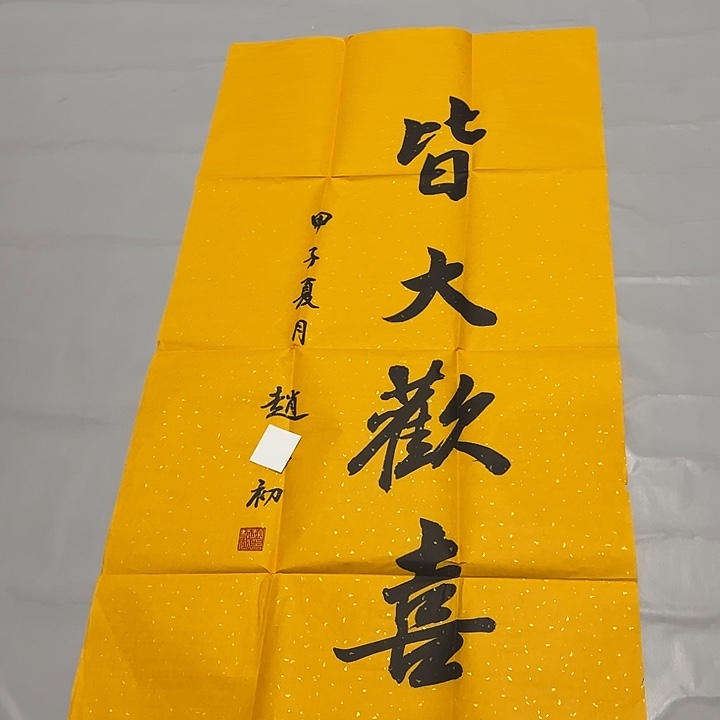 皆大歡喜
甲子夏月
趙 初